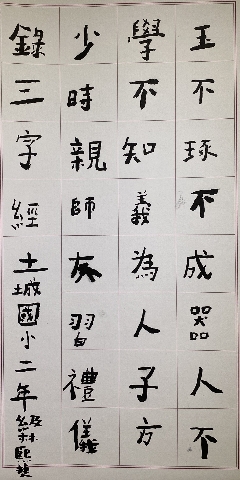 玉不琢不成器人不
學不知義為人子方
少時親師友習禮儀
錄三字經土城國小二年級林熙